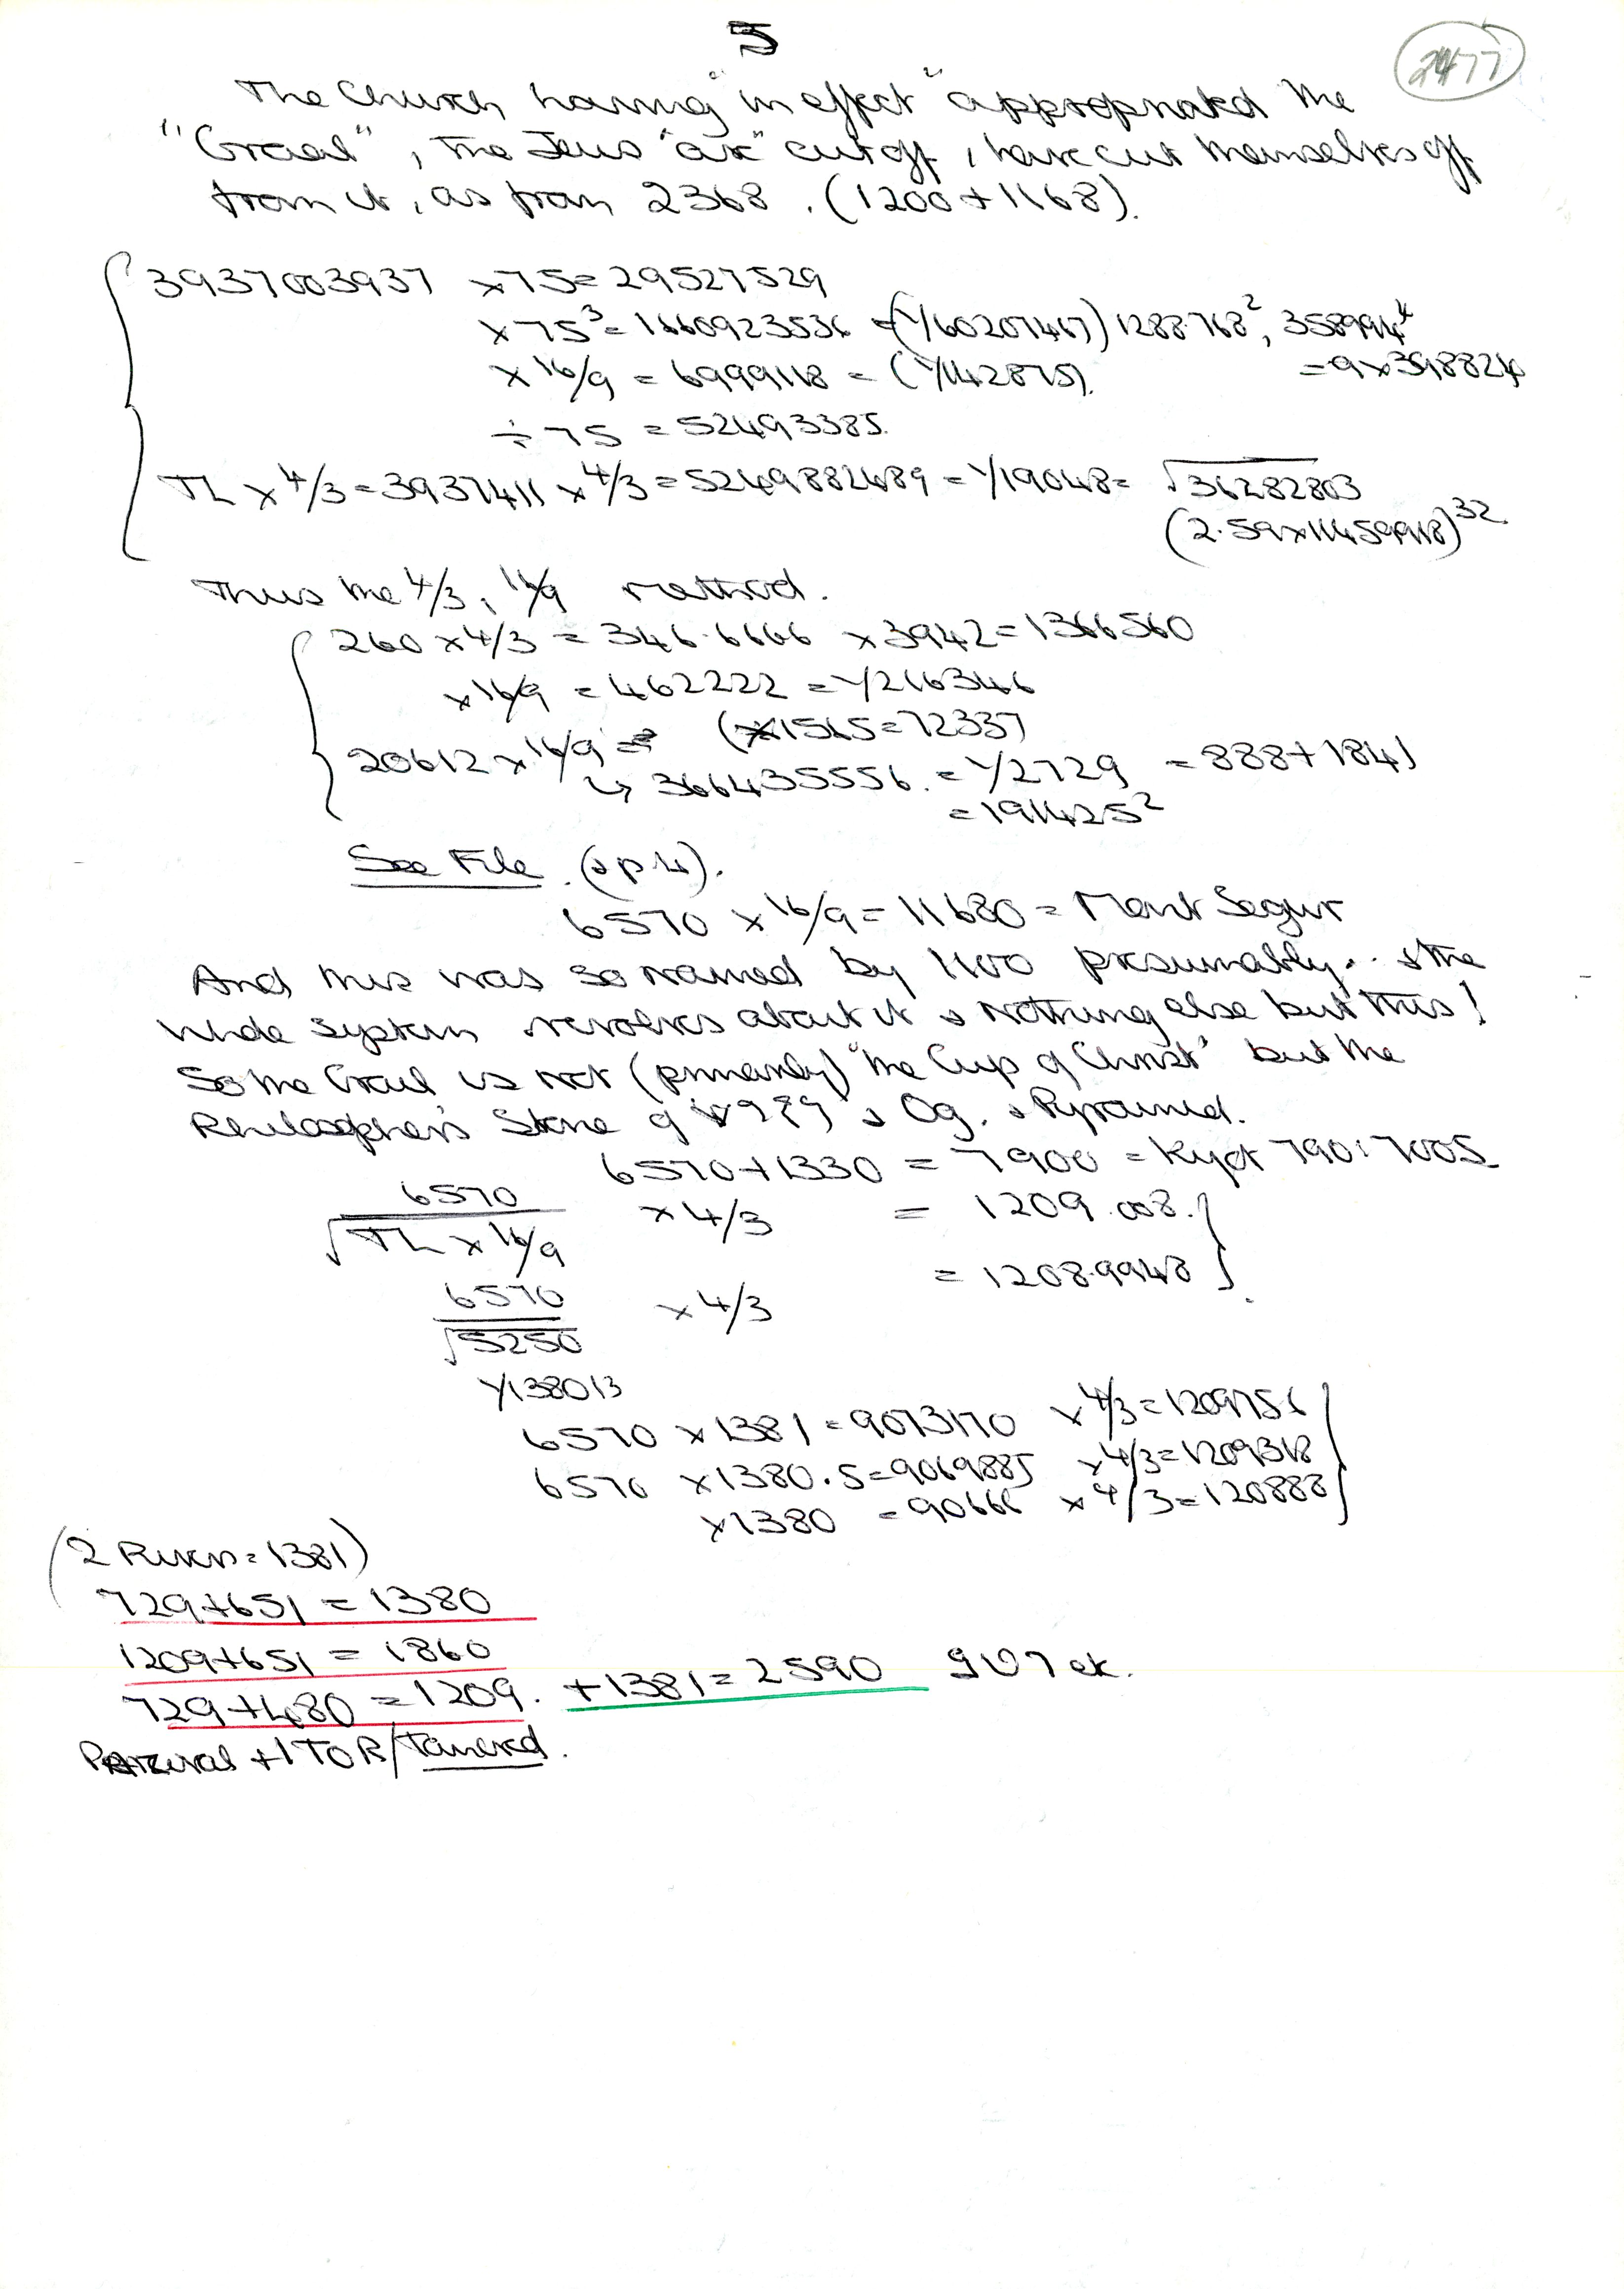 5
2477
The Church having "in effect" appropriated the
"Graal", the Jews "are" cut off, have cut themselves off
from it, as from 2368. (1200 + 1168).
3937003937 x 75 = 29527529
x 75³ = 1660923536 = (1/60207467) 1288.768², 358994⁴
x 16/9 = 6999118 = (1/142875). = 9 x 398824
÷ 75 = 52493385.
TL x 4/3 = 3937411 x 4/3 = 5249882489 = 1/19048 = √36282803
(2.59 x 11459918)³²
Thus the 4/3, 16/9 method.
260 x 4/3 = 346.6666 x 3942 = 1366560
x 16/9 = 462222 = 1/216346
(x 1565 = 72337)
20612 x 16/9 =
↳ 366435556. = 1/2729 = 888 + 1841
= 191425²
See File. (& p.4).
6570 x 16/9 = 11680 = Mont Segur
And this was so named by 1100 presumably.. & the
whole system revolves about it & nothing else but this!
So the Graal is not (primarily) "the Cup of Christ" but the
Philosopher's Stone of & Og. & Pyramid.
6570 + 1330 = 7900 = Kyot 790: 7005
6570 / √TL x 16/9 x 4/3 = 1209.008.
6570 / √5250 x 4/3 = 1208.9948
1/138013
6570 x 1381 = 9073170 x 4/3 = 1209756
6570 x 1380.5 = 9069885 x 4/3 = 1209318
x 1380 = 90666 x 4/3 = 120888
(2 = 1381)
729 + 651 = 1380
1209 + 651 = 1860
729 + 480 = 1209. + 1381 = 2590
Parzival + 1 TOR/Tancred.